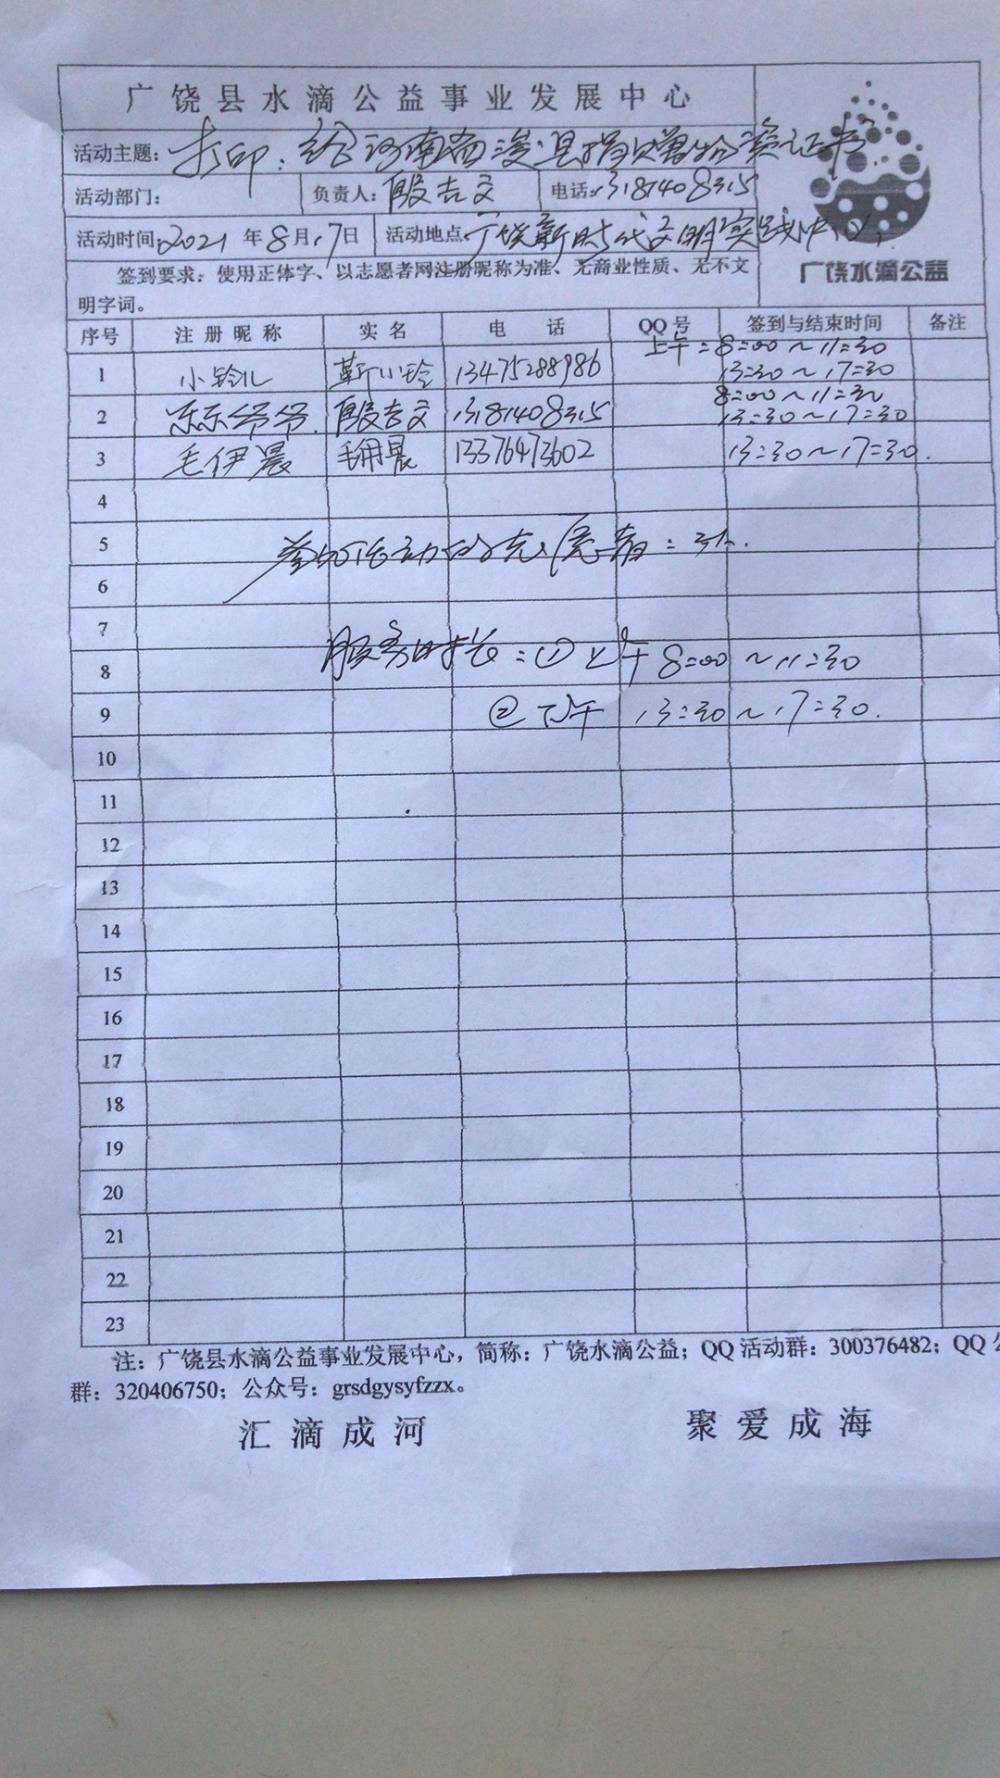 广饶县水滴公益事业发展中心
活动主题：打印：给河南省浚县捐赠物资证书
活动部门： 负责人：殷吉文 电话：13181408315
活动时间：2021年8月17日 活动地点：广饶新时代文明实践中心
签到要求：使用正体字、以志愿者网注册昵称为准、无商业性质、无不文
明字词。
广饶水滴公益
序号 注册昵称 实名 电话 QQ号 签到与结束时间 备注
上午：8:00～11:30
1 小铃儿 靳小玲 13475288986 13:30～17:30
8:00～11:30
2 东东爷爷 殷吉文 13181408315 13:30～17:30
3 毛伊晨 毛伊晨 13376473602 13:30～17:30.
4
5 参加活动的志愿者：3人.
6
7
8 服务时长：① 上午 8:00～11:30
9 ② 下午 13:30～17:30.
10
11
12
13
14
15
16
17
18
19
20
21
22
23
注：广饶县水滴公益事业发展中心，简称：广饶水滴公益；QQ活动群：300376482；QQ
群：320406750；公众号：grsdgysyfzzx。
汇滴成河 聚爱成海